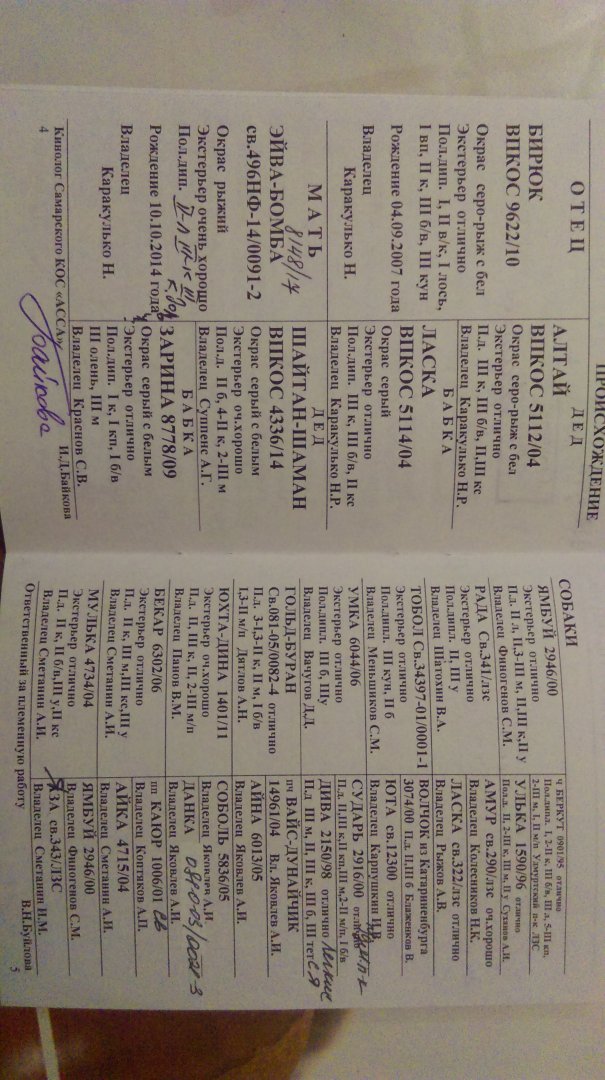 ПРОИСХОЖДЕНИЕ
ОТЕЦ
БИРЮК
ВПКОС 9622/10
Окрас серо-рыж с бел
Экстерьер отлично
Пол.дип. I, II в/к, I лось,
I вп, II к, III б/в, III кун
Рождение 04.09.2007 года
Владелец
Каракулько Н.
МАТЬ
8148/14
ЭЙВА-БОМБА
св.496НФ-14/0091-2
Окрас рыжий
Экстерьер очень хорошо
Пол.дип.
Рождение 10.10.2014 года
Владелец
Каракулько Н.
Кинолог Самарского КОС «АССА»
И.Д.Байкова
4
ДЕД
АЛТАЙ
ВПКОС 5112/04
Окрас серо-рыж с бел
Экстерьер отлично
П.д. III к, III б/в, II,III кс
Владелец Каракулько Н.Р.
БАБКА
ЛАСКА
ВПКОС 5114/04
Окрас серый
Экстерьер отлично
Пол.дип. III к, III б/в, II кс
Владелец Каракулько Н.Р.
ДЕД
ШАЙТАН-ШАМАН
ВПКОС 4336/14
Окрас серый с белым
Экстерьер оч.хорошо
Пол.д. II б, 4-II к, 2-III м
Владелец Суппенс А.Г.
БАБКА
ЗАРИНА 8778/09
Окрас серый с белым
Экстерьер отлично
Пол.дип. I к, I кп, I б/в
III олень, III м
Владелец Краснов С.В.
СОБАКИ
ЯМБУЙ 2946/00
Экстерьер отлично
П.д. II л, II,3-III м, II,III к,II у
Владелец Финогенов С.М.
РАДА Св.341/лзс
Экстерьер отлично
Пол.дипл. II, III у
Владелец Шатохин В.А.
ТОБОЛ Св.34397-01/0001-1
Экстерьер отлично
Пол.дипл. III кун, II б
Владелец Меньшиков С.М.
УМКА 6044/06
Экстерьер отлично
Пол.дипл. III б, IIIу
Владелец Вачугов Д.Д.
ГОЛЬД-БУРАН
Св.081-05/0082-4 отлично
П.д. 3-I,3-II к, II м, I б/в
I,3-II м/п Дятлов А.Н.
ЮХТА-ДИНА 1401/11
Экстерьер оч.хорошо
П.д. II, III к, II, 2-III м/п
Владелец Панов В.М.
БЕКАР 6302/06
Экстерьер отлично
П.д. II к, III м,III кс,III у
Владелец Сметанин А.И.
МУЛЬКА 4734/04
Экстерьер отлично
П.д. II к, II б/в,III у,II кс
Владелец Сметанин А.И.
Ч БЕРКУТ 0901/95 отлично
Пол.дипл. I, 2-II к, III б/в, III л, 5-III кп,
2-III м, I, II м/п Удмуртский п-к ЛЗС
УЛЬКА 1590/96 отлично
Пол.д. II, 2-III к, III м, II у Суханов А.И.
АМУР св.290/лзс оч.хорошо
Владелец Колесников Н.К.
ЛАСКА св.322/лзс отлично
Владелец Рыжков А.В.
ВОЛЧОК из Катариненбурга
3074/00 П.д. II,III б Блаженков В.
ЮТА св.12300 отлично
Владелец Карпушкин Н.В
СУДАРЬ 2916/00 отлично
П.д. II,III к,II кп,III м,2-II м/п, I б/в
ДИВА 2150/98 отлично
П.д III м, II, III к, III б, III тет
пч ВАЙС-ДУНАЙЧИК
14961/04 Вл. Яковлев А.И.
АЙНА 6013/05
Владелец Яковлев А.И.
СОБОЛЬ 5836/05
Владелец Яковлев А.И
ДАНКА
Владелец Яковлев А.И.
пп КАЮР 1006/01 св
Владелец Коптяков А.П.
АЙКА 4715/04
Владелец Сметанин А.И.
ЯМБУЙ 2946/00
Владелец Финогенов С.М.
ЯЗА св.343/ЛЗС
Владелец Сметанин И.М.
Ответственный за племенную работу
В.Н.Буйлова
5